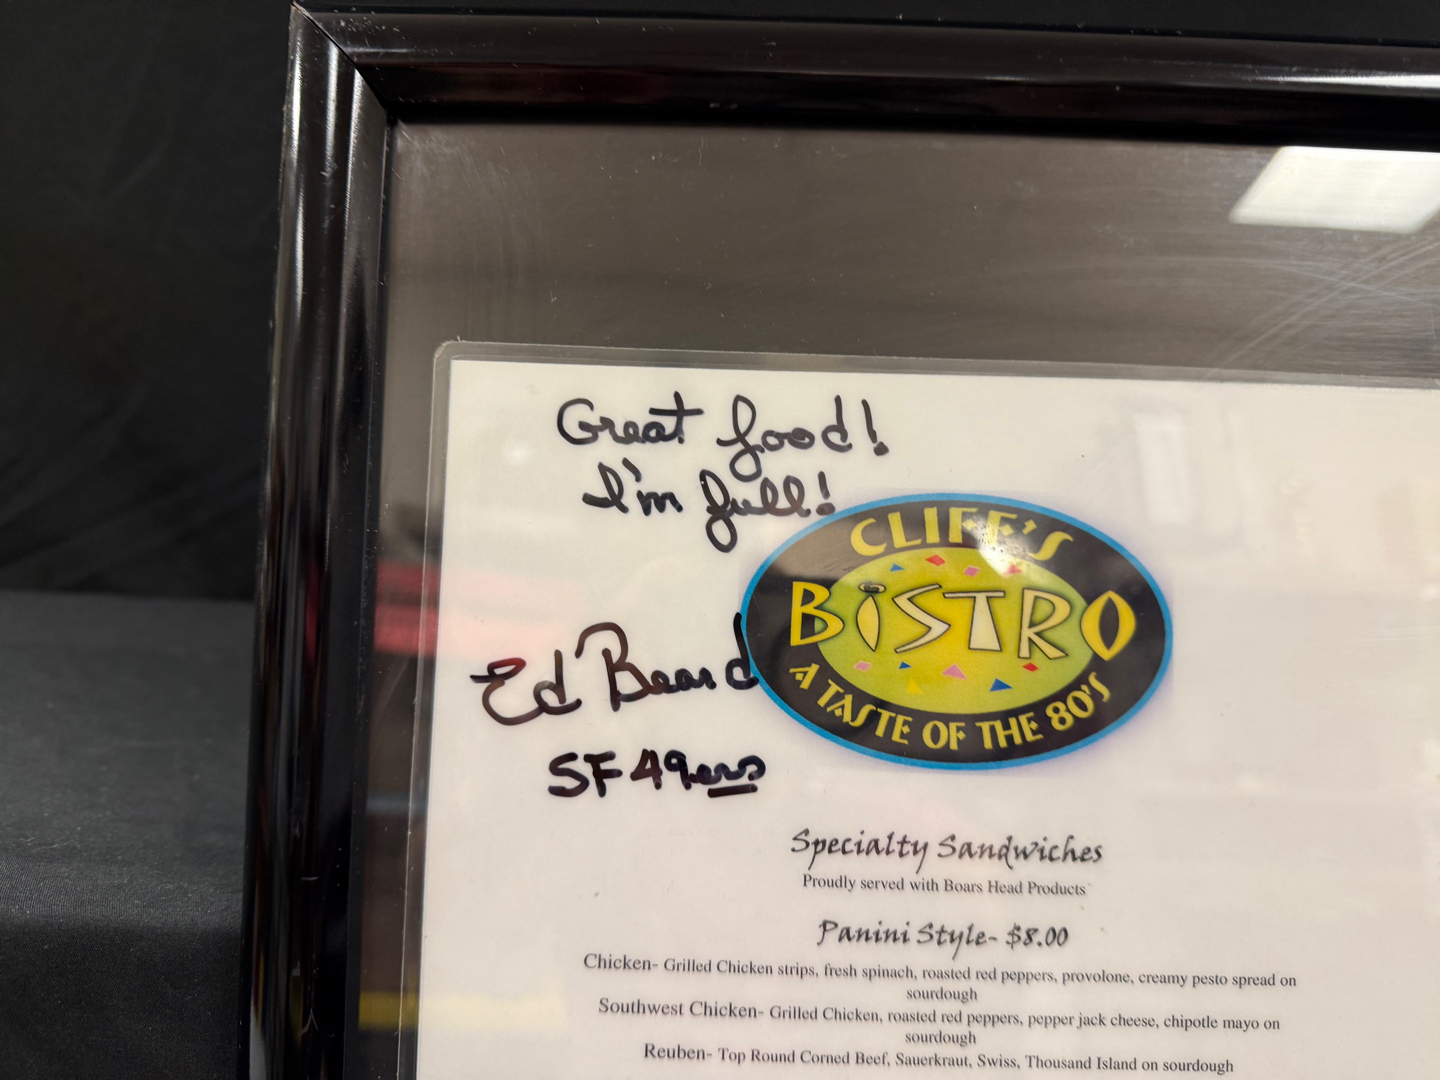 Great food!
I'm full!
Ed Beard
SF 49ers
CLIFF'S
BISTRO
A TASTE OF THE 80'S
Specialty Sandwiches
Proudly served with Boars Head Products
Panini Style- $8.00
Chicken- Grilled Chicken strips, fresh spinach, roasted red peppers, provolone, creamy pesto spread on
sourdough
Southwest Chicken- Grilled Chicken, roasted red peppers, pepper jack cheese, chipotle mayo on
sourdough
Reuben- Top Round Corned Beef, Sauerkraut, Swiss, Thousand Island on sourdough